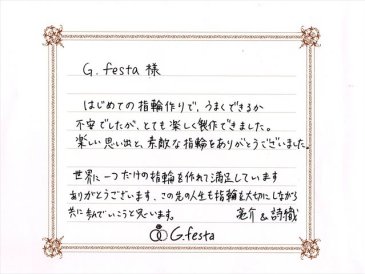 G.festa 様
はじめての指輪作りで、うまくできるか
不安でしたが、とても楽しく製作できました。
楽しい思い出と、素敵な指輪をありがとうございました。
世界に一つだけの指輪を作れて満足しています
ありがとうございます、この先の人生も指輪を大切にしながら
共に歩んでいこうと思います。 竜介 & 詩織
G.festa